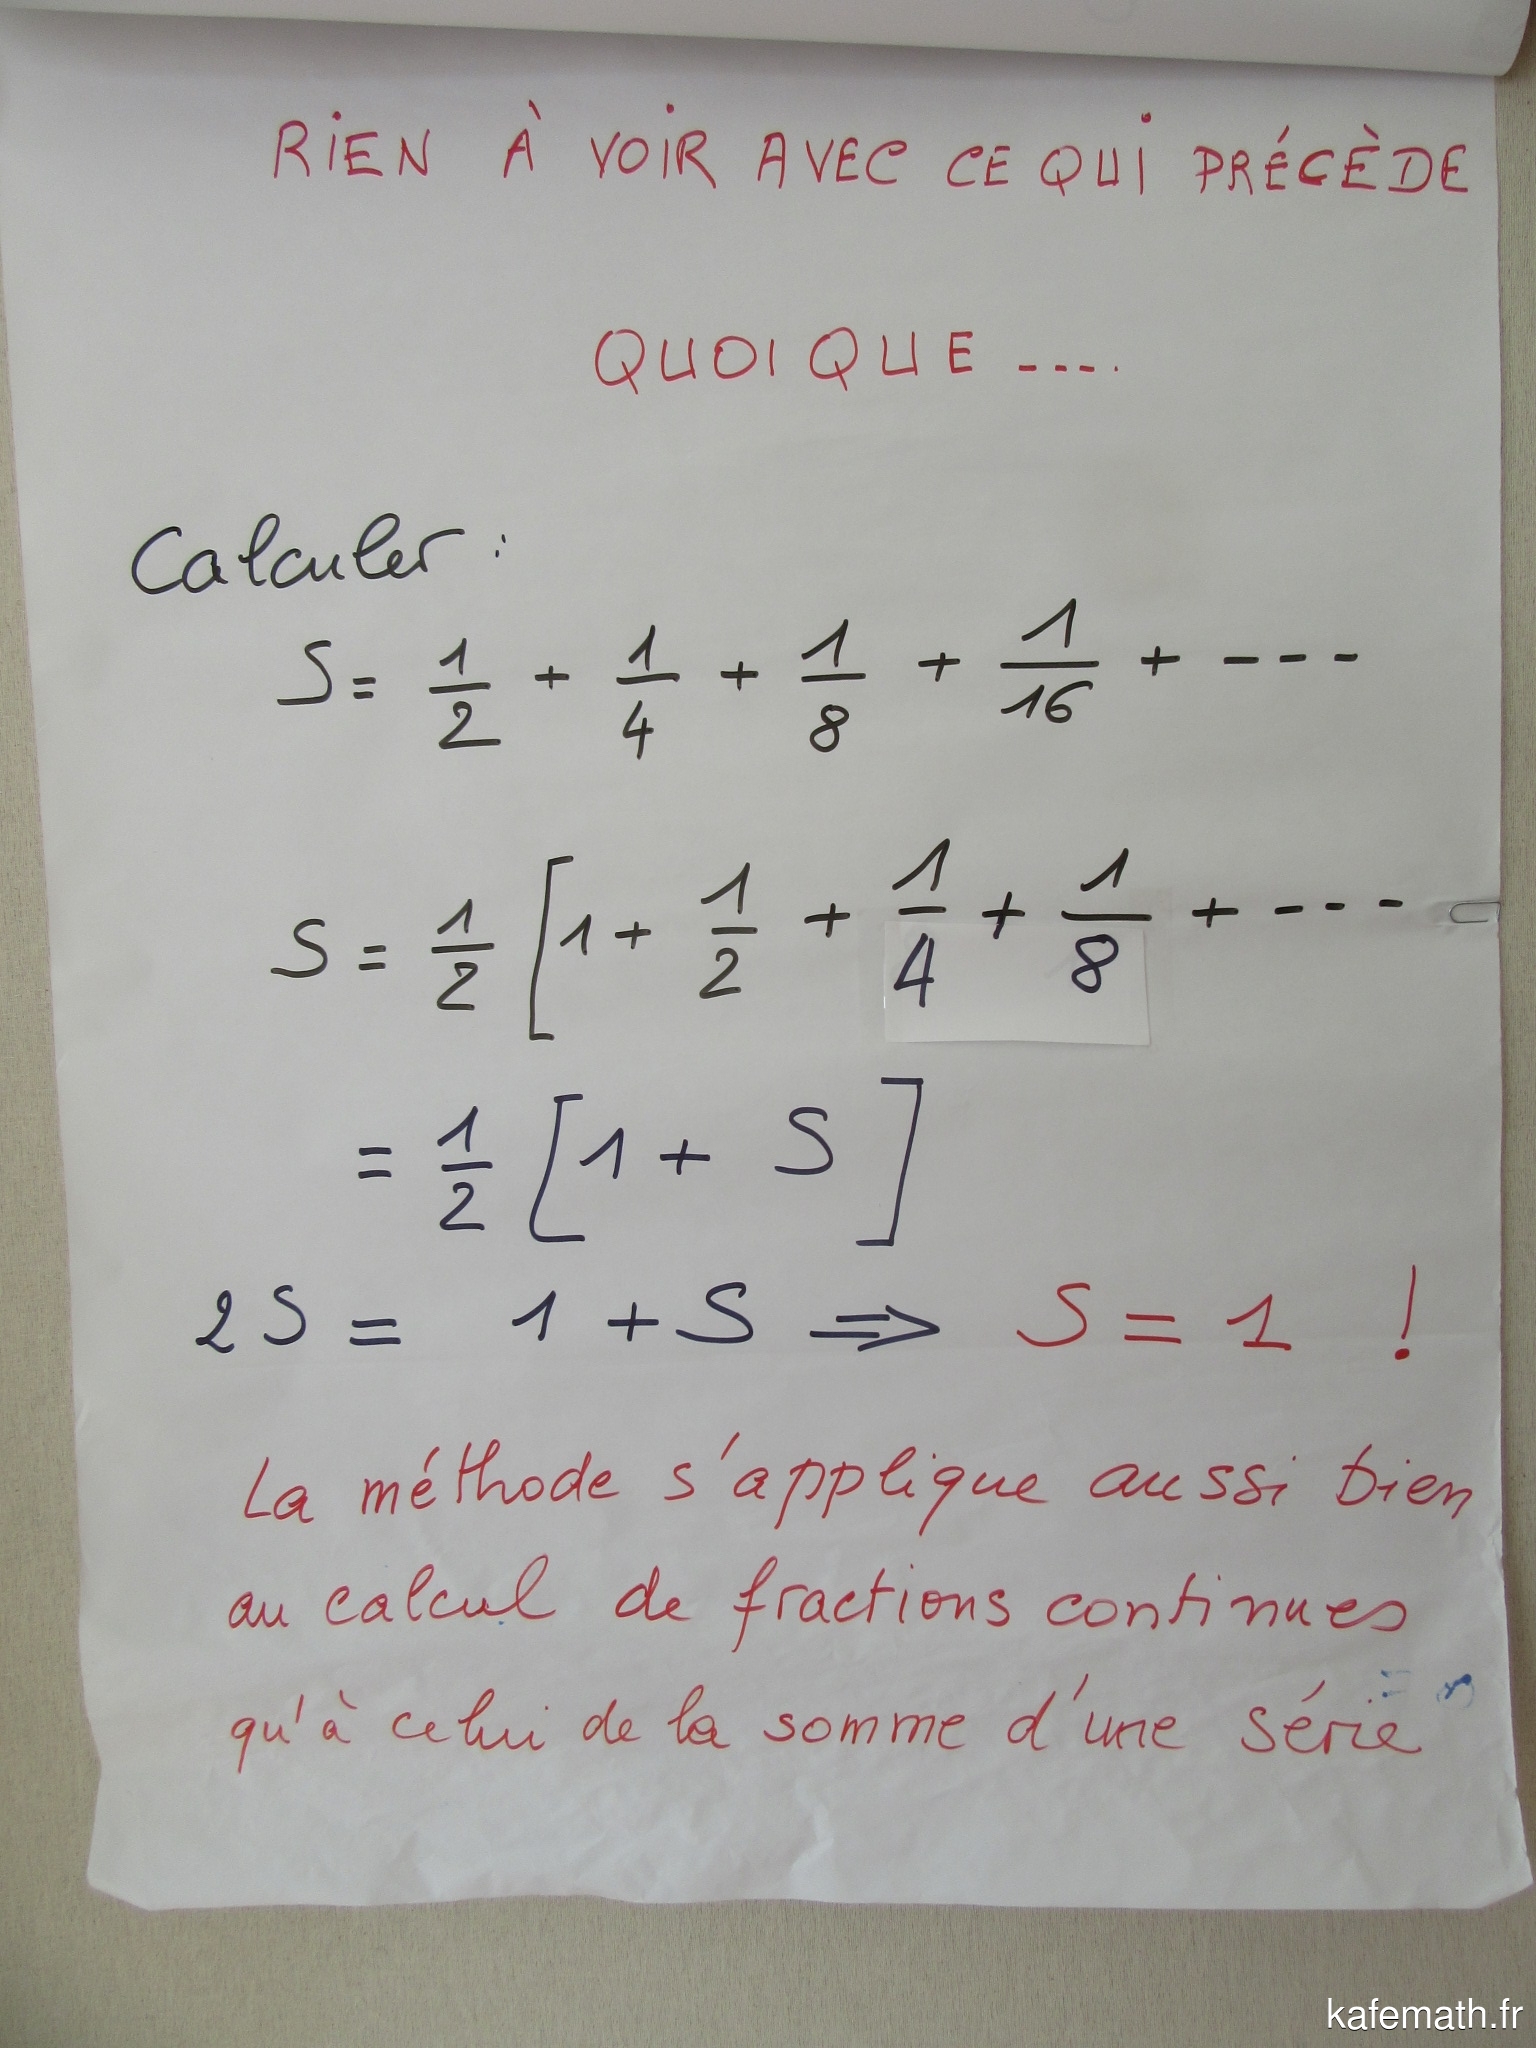 RIEN À VOIR AVEC CE QUI PRÉCÈDE
QUOIQUE ----.
Calculer :
S = 1/2 + 1/4 + 1/8 + 1/16 + ---
S = 1/2 [1 + 1/2 + 1/4 + 1/8 + ---
= 1/2 [1 + S]
2S = 1 + S ⇒ S = 1 !
La méthode s'applique aussi bien
au calcul de fractions continues
qu'à celui de la somme d'une série
kafemath.fr